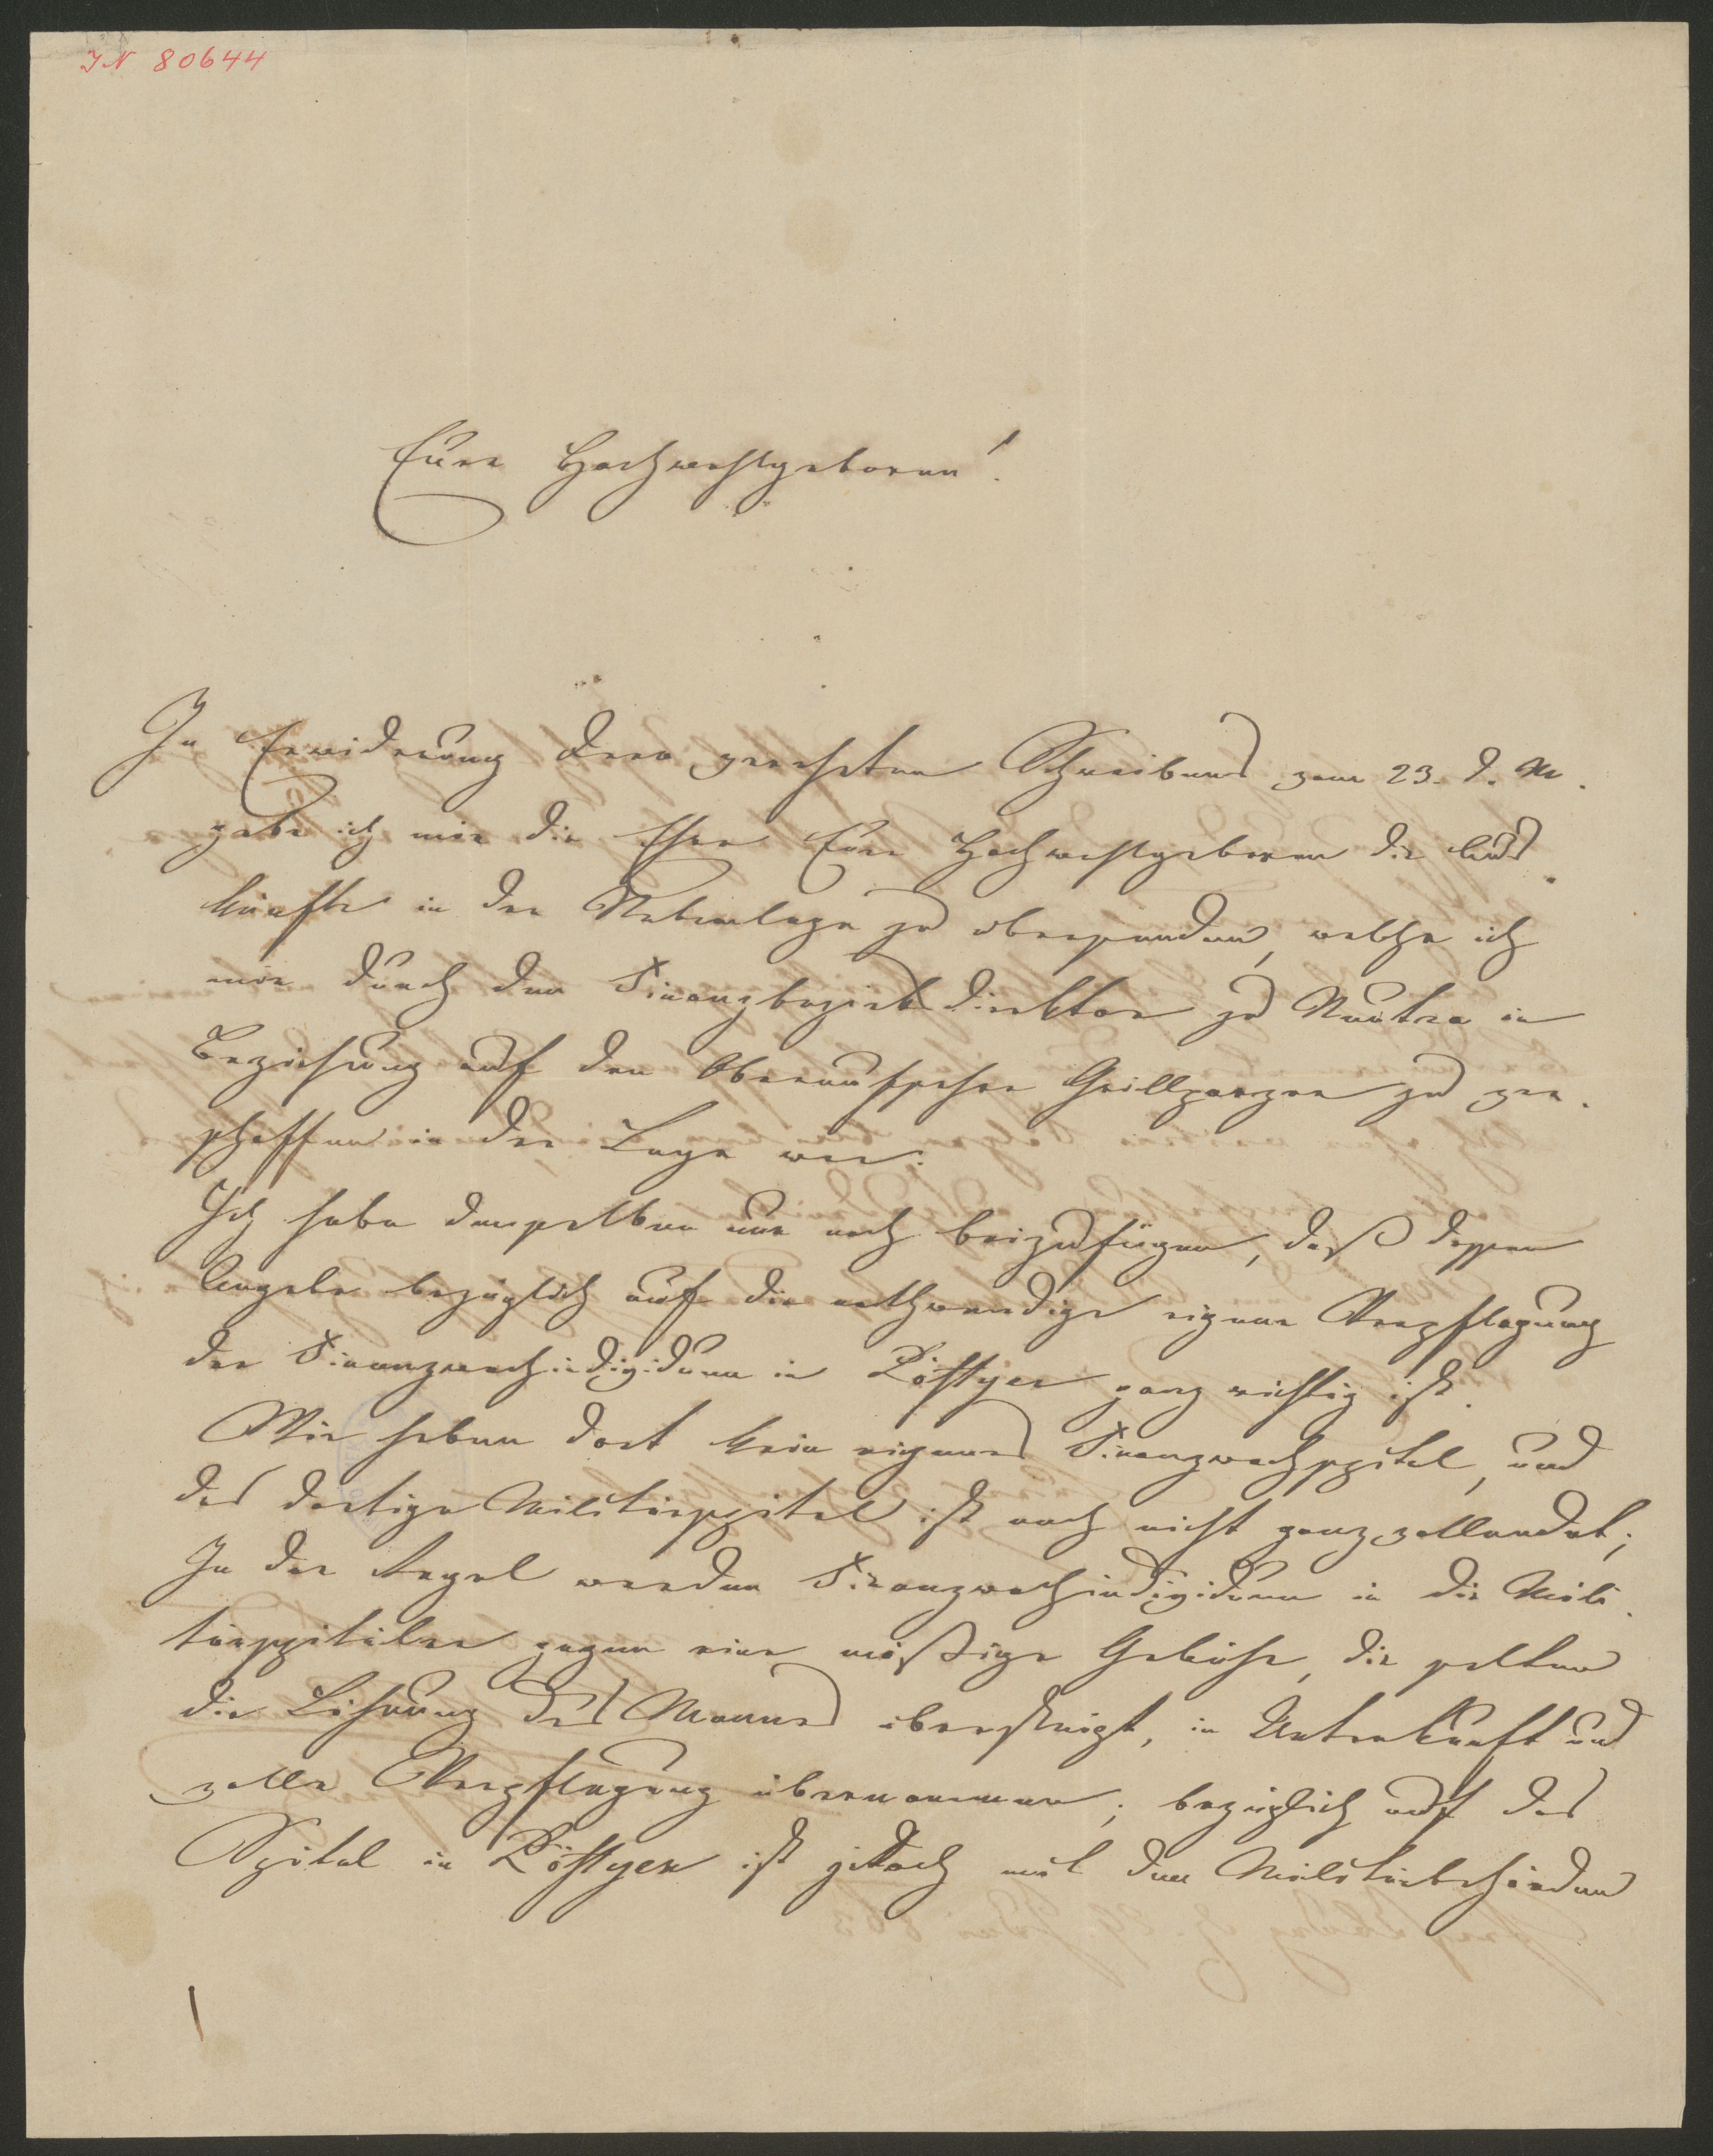 IN 80644
Eure Hochwohlgeboren!
In Erwiderung Dero geehrten Schreibens vom 23. d. M.
gebe ich mir die Ehre Eure Hochwohlgeboren die Aus-
künfte in der Nebenlage zu übersenden, welche ich
mir durch den Finanzbezirksdirektor zu Neutra in
Beziehung auf den Oberaufseher Grillparzer zu ver-
schaffen in der Lage war.
Ich habe denselben nur noch beizufügen, daß dessen
Angabe bezüglich auf die nothwendige eigene Verpflegung
der Finanzwachindividuen in Pöstyen ganz richtig ist.
Wir haben dort kein eigenes Finanzwachspital, und
das dortige Militärspital ist noch nicht ganz vollendet;
In der Regel werden Finanzwachindividuen in die Mili-
tärspitäler gegen eine mäßige Gebühr, die selten
die Löhnung des Mannes übersteigt, in Unterkunft und
volle Verpflegung übernommen; bezüglich auf das
Spital in Pöstyen ist jedoch mit den Militärbehörden